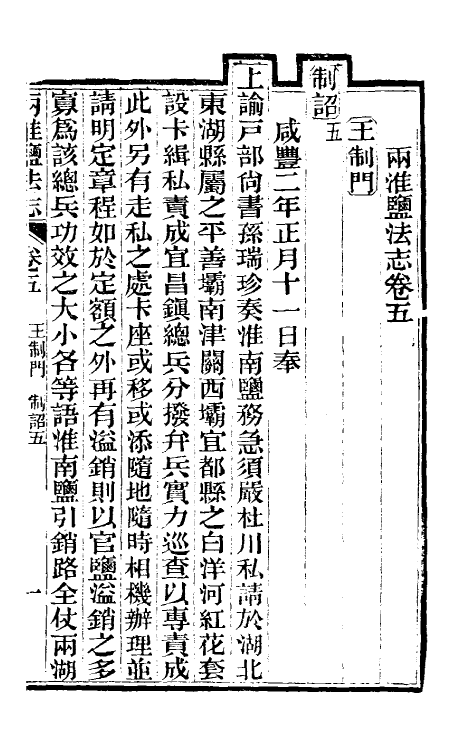 兩淮鹽法志卷五
王制門
制詔五
咸豐二年正月十一日奉
上諭戶部尚書孫瑞珍奏淮南鹽務急須嚴杜川私請於湖北
東湖縣屬之平善壩南津關西壩宜都縣之白洋河紅花套
設卡緝私責成宜昌鎮總兵分撥弁兵實力巡查以專責成
此外另有走私之處卡座或移或添隨地隨時相機辦理並
請明定章程如於定額之外再有溢銷則以官鹽溢銷之多
寡爲該總兵功效之大小各等語淮南鹽引銷路全仗兩湖
兩淮鹽法志 卷五 王制門 制詔五 一